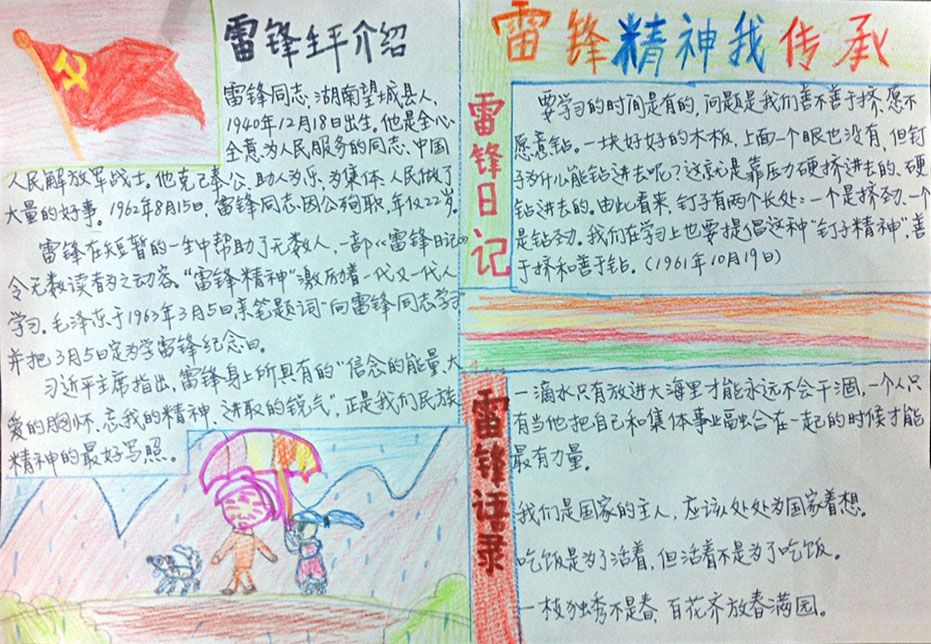 雷锋生平介绍
雷锋同志,湖南望城县人,
1940年12月18日出生。他是全心
全意为人民服务的同志、中国
人民解放军战士。他克己奉公,助人为乐,为集体、人民做了
大量的好事。1962年8月15日,雷锋同志因公殉职,年仅22岁。
雷锋在短暂的一生中帮助了无数人,一部《雷锋日记》
令无数读者为之动容。“雷锋精神”激励着一代又一代人
学习。毛泽东于1963年3月5日亲笔题词“向雷锋同志学习”
并把3月5日定为学雷锋纪念日。
习近平主席指出,雷锋身上所具有的“信念的能量、大
爱的胸怀、忘我的精神、进取的锐气”,正是我们民族
精神的最好写照。
雷锋精神我传承
雷锋日记
要学习的时间是有的,问题是我们善不善于挤,愿不
愿意钻。一块好好的木板,上面一个眼也没有,但钉
子为什么能钻进去呢?这就是靠压力硬挤进去的、硬
钻进去的。由此看来,钉子有两个长处:一个是挤劲,一个
是钻劲。我们在学习上也要提倡这种“钉子精神”,善
于挤和善于钻。(1961年10月19日)
雷锋语录
一滴水只有放进大海里才能永远不会干涸,一个人只
有当他把自己和集体事业融合在一起的时候才能
最有力量。
我们是国家的主人,应该处处为国家着想。
吃饭是为了活着,但活着不是为了吃饭。
一枝独秀不是春,百花齐放春满园。